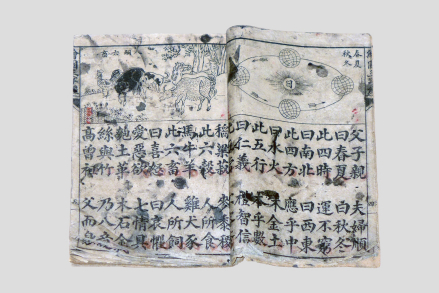 春夏
秋冬
父子親 夫婦順
曰春夏 曰秋冬
此四時 運不窮
曰南北 曰西東
此四方 應乎中
曰水火 木金土
此五行 本乎數
曰仁義 禮智信
稻粱菽 麥黍稷
此六穀 人所食
馬牛羊 雞犬豕
此六畜 人所飼
曰喜怒 曰哀懼
愛惡欲 七情具
匏土革 木石金
絲與竹 乃八音
高曾祖 父而身